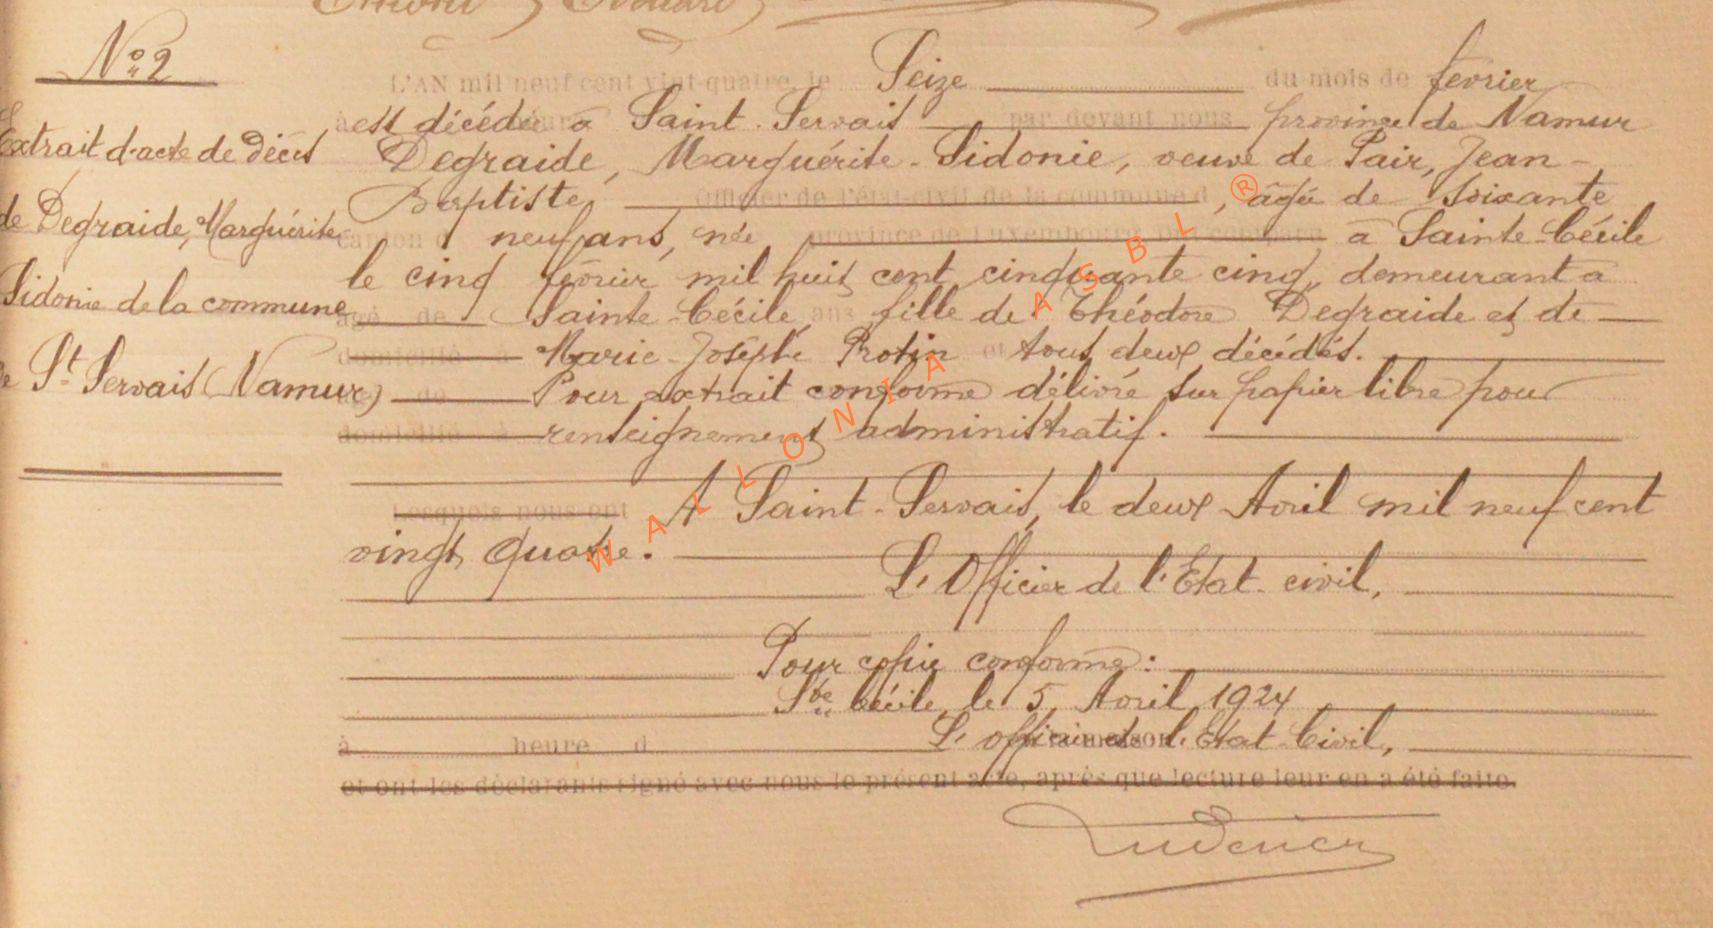 N° 2
Extrait d'acte de décès
de Degraide, Marguérite
Sidonie de la commune
de St Servais (Namur)
L'AN mil neuf cent vingt-quatre, le Seize du mois de février
est décédée à Saint-Servais par devant nous province de Namur
Degraide, Marguérite-Sidonie, veuve de Pair, Jean-
Baptiste, Officier de l'état-civil de la commune d , âgée de soixante
canton d neuf ans, née province de Luxembourg à Sainte-Cécile
le cinq février mil huit cent cinquante cinq, demeurant à
âgé de Sainte-Cécile, ans fille de Théodore Degraide et de
domicilié à Marie-Josèphe Protin et tous deux décédés.
de Pour extrait conforme délivré sur papier libre pour
domicilié à renseignement administratif.
Lesquels nous ont A Saint-Servais, le deux Avril mil neuf cent
vingt quatre.
L'Officier de l'Etat-civil,
Pour copie conforme:
Ste Cécile, le 5 Avril 1924
à heure d L'officier de l'Etat-Civil,
et ont les déclarants signé avec nous le présent acte, après que lecture leur en a été faite.
WALLONIA ASBL ®